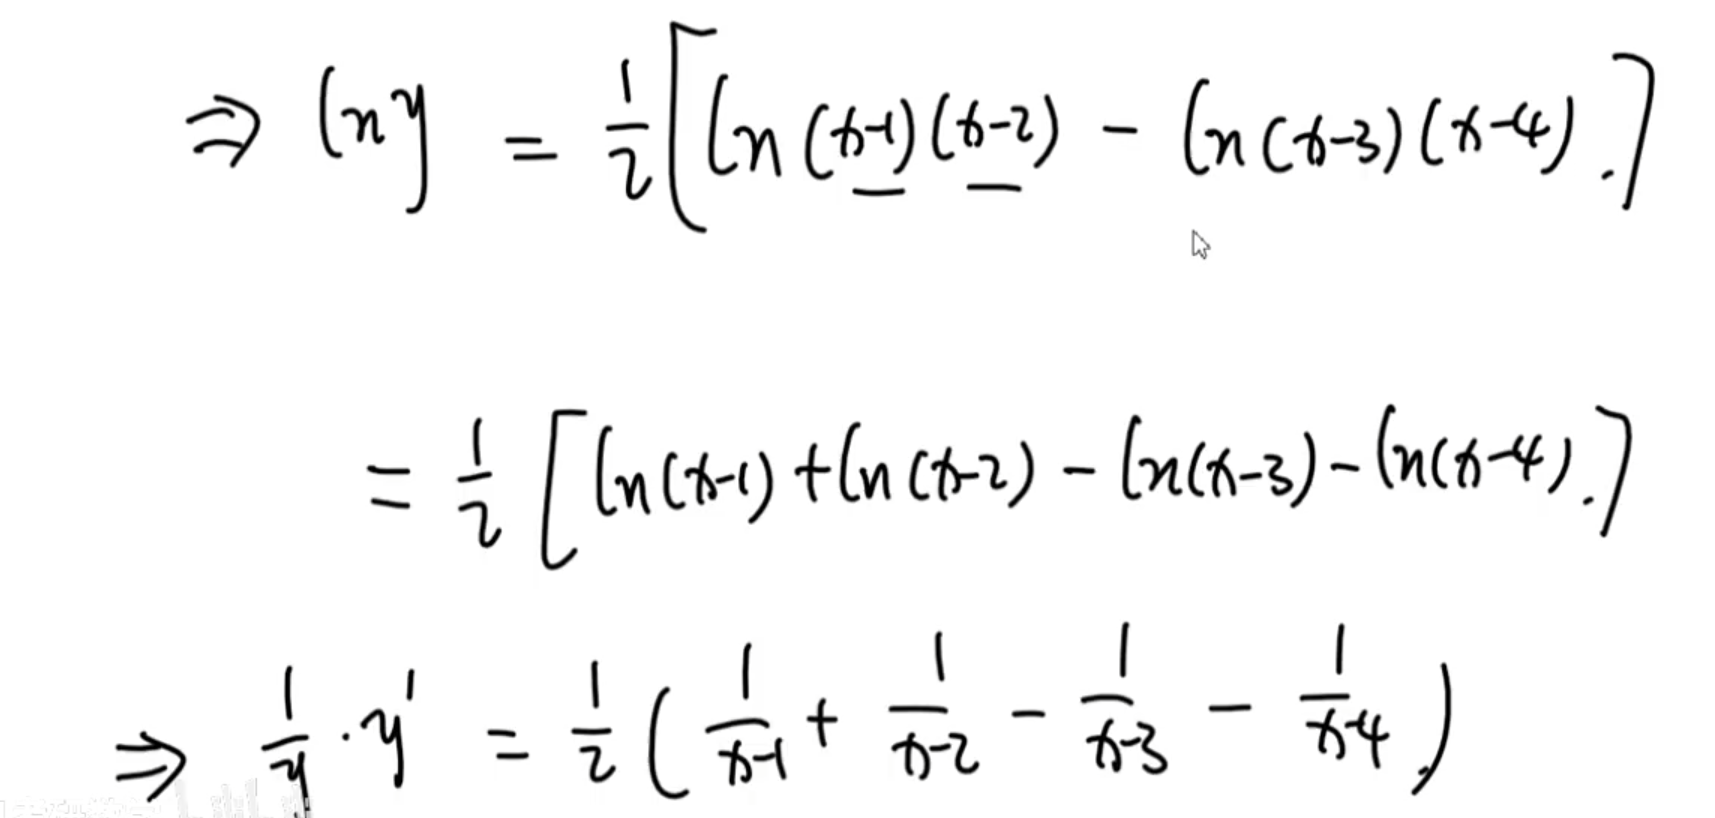 ⇒ ln y = 1/2 [ln(x-1)(x-2) - ln(x-3)(x-4).]
= 1/2 [ln(x-1) + ln(x-2) - ln(x-3) - ln(x-4).]
⇒ 1/y · y' = 1/2 (1/(x-1) + 1/(x-2) - 1/(x-3) - 1/(x-4).)